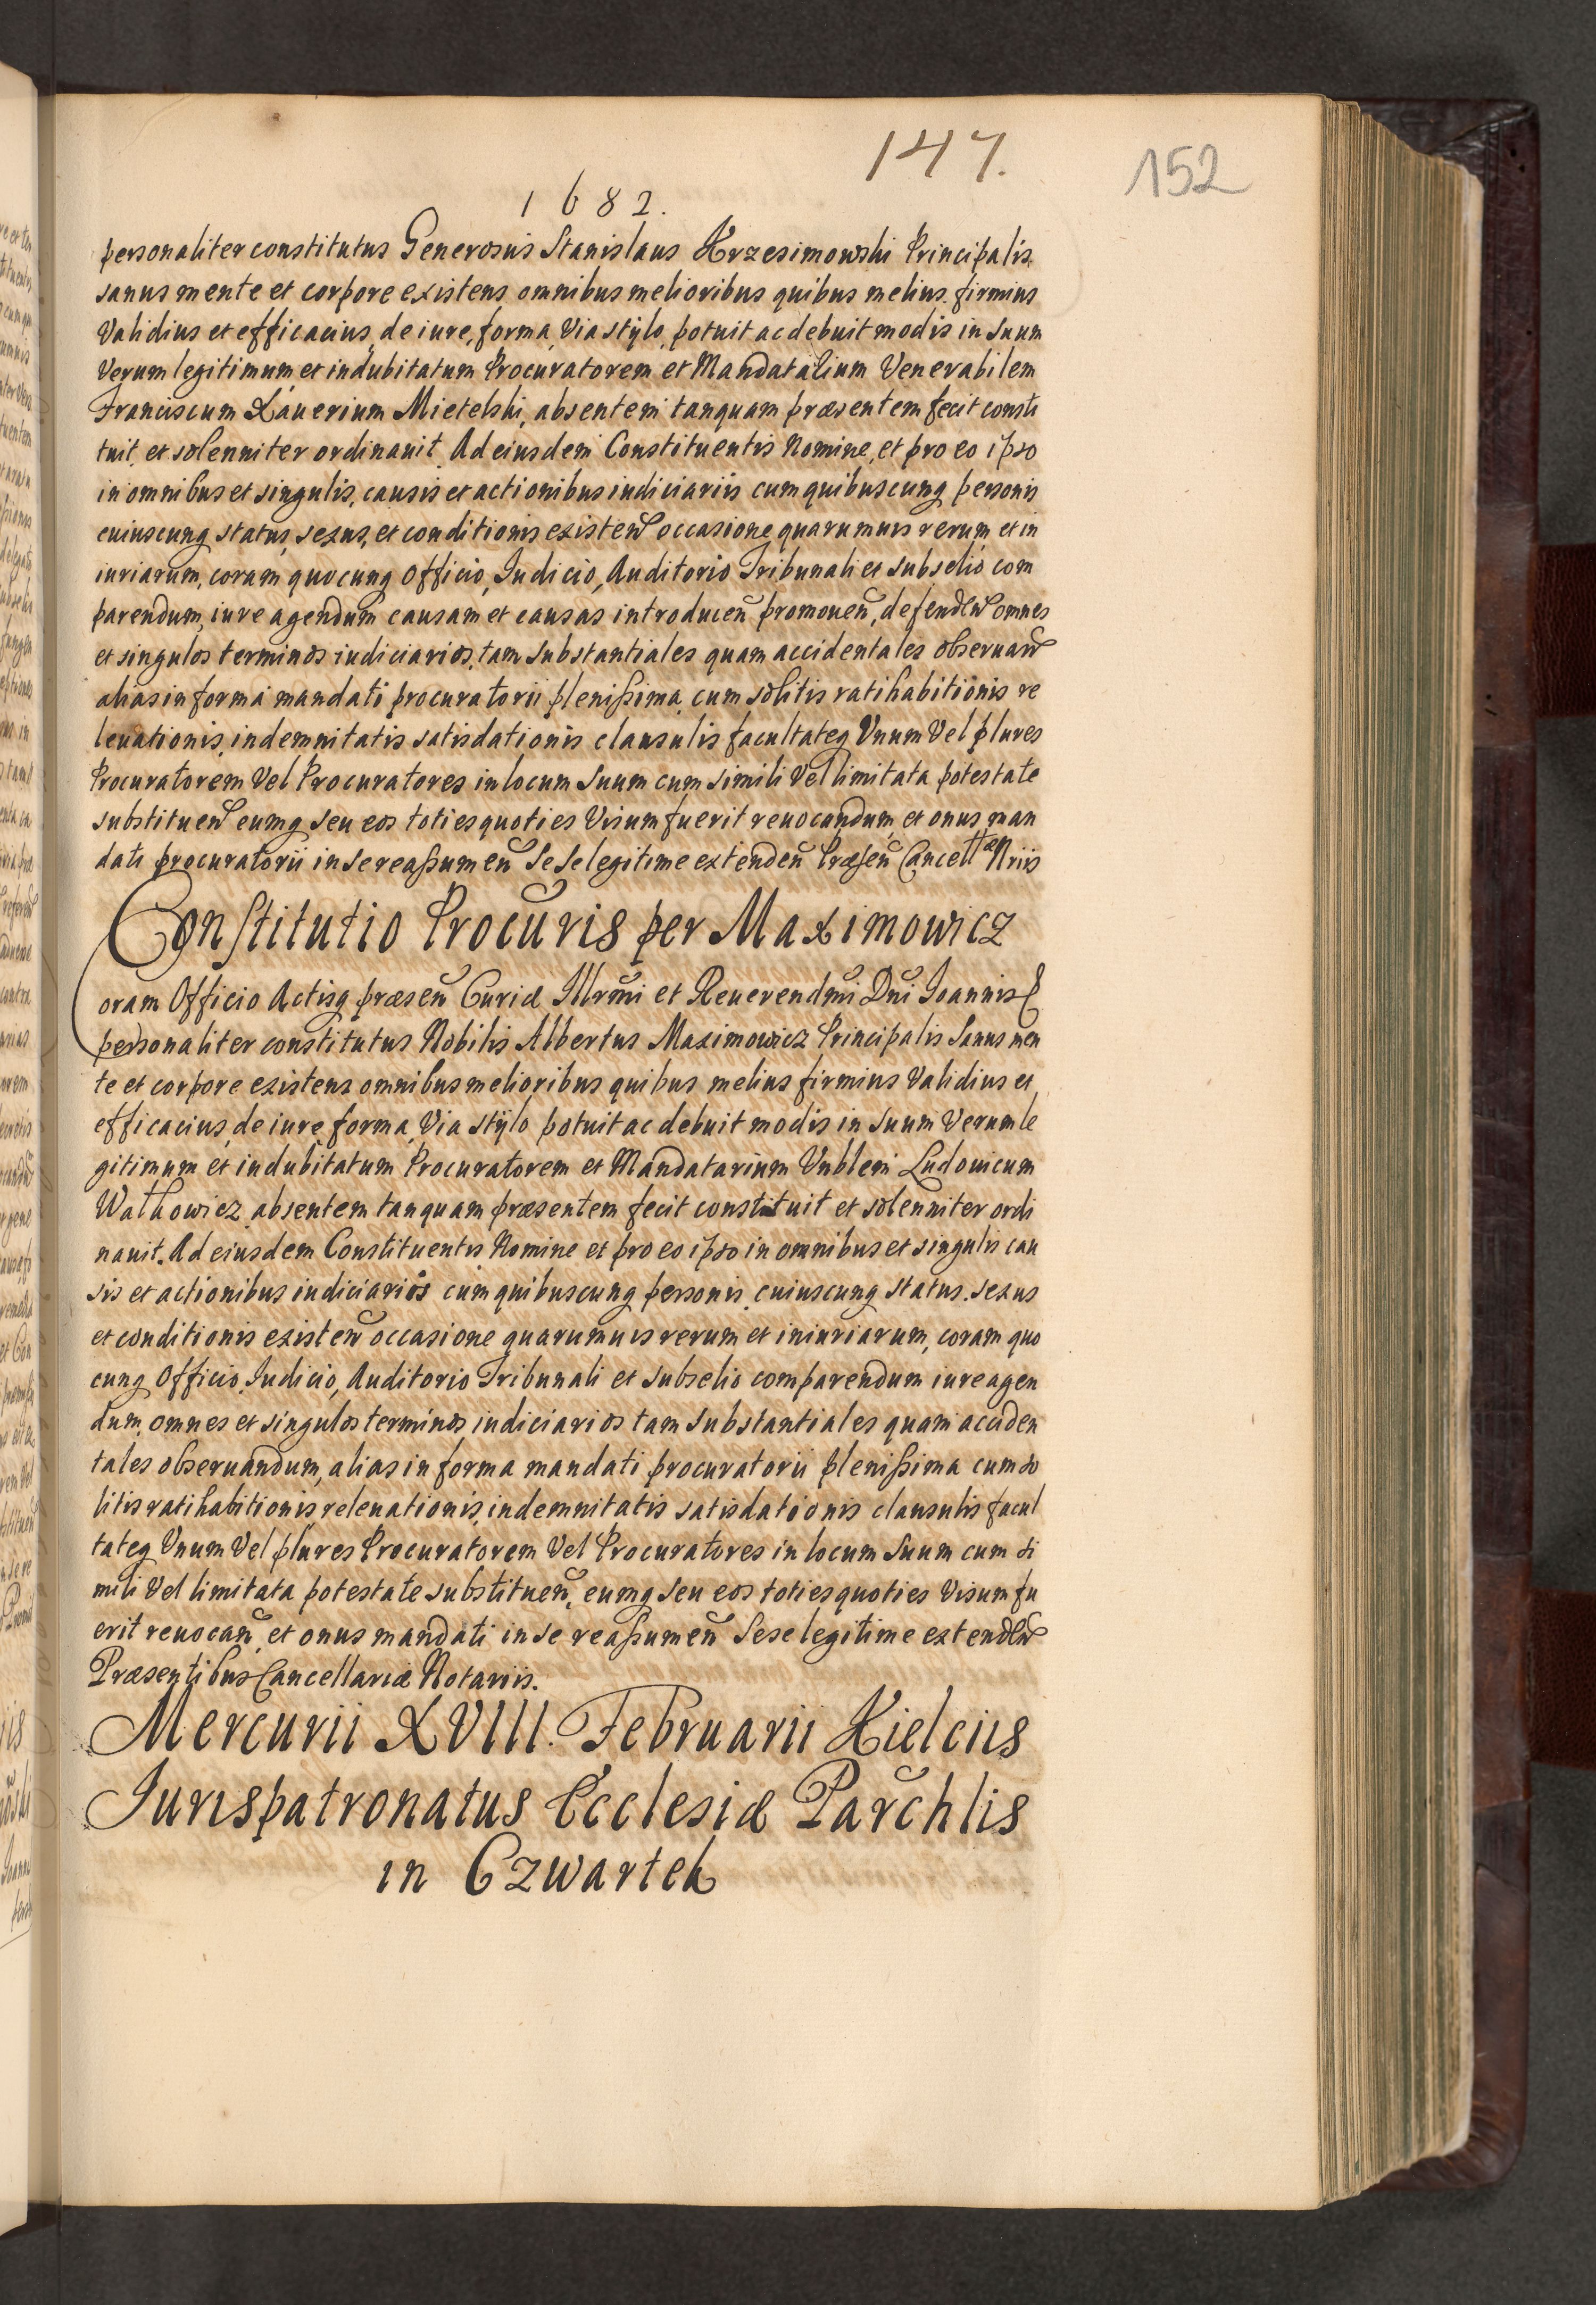 147.
152
1682.
personaliter constitutus Generosus Stanislaus Krzesimowski Principalis.
sanus mente et corpore existens omnibus melioribus quibus melius firmius
Validius et efficacius, de iure, forma, Via stylo, potuit ac debuit modis in suum
Verum legitimum et indubitatum Procuratorem et Mandatarium Venerabilem
Franciscum Xauerium Mietelski, absentem tanquam præsentem fecit consti
tuit, et solenniter ordinauit. Ad eiusdem Constituentis Nomine, et pro eo ipso
in omnibus et singulis, causis et actionibus iudiciariis cum quibuscunq personis
cuiuscunq status, sexus, et conditionis existen occasione quarumuis rerum, et in
iuriarum, coram quocunq Officio, Iudicio, Auditorio Tribunali et subselio com
parendum, iure agendum causam et causas introducen̄ promouen̄, defenden omnes
et singulos terminos iudiciarios, tam substantiales quam accidentales obseruan
alias in forma mandati procuratorii plenißima, cum solitis ratihabitionis re
leuationis, indemnitatis satisdationis clausulis facultateq Vnum Vel plures
Procuratorem Vel Procuratores in locum suum cum simili Vel limitata potestate
substituen eumq seu eos totiesquoties Visum fuerit reuocandum, et onus man
dati procuratorii in se reaßumen̄ Se se legitime extenden̄ Præsen̄ Cancellæ Nriis
Constitutio Procūris per Maximowicz
oram Officio Actisq præsen̄ Curiæ Illrmi et Reuerendm̄i Dn̄i Ioannis
personaliter constitutus Nobilis Albertus Maximowicz Principalis Sanus men
te et corpore existens omnibus melioribus quibus melius firmius Validius et
efficacius, de iure, forma, Via stylo potuit ac debuit modis in suum Verum le
gitimum et indubitatum Procuratorem et Mandatarium Vnblem Ludouicum
Watkowicz absentem tanquam præsentem fecit constituit et solenniter ordi
nauit. Ad eiusdem Constituentis Nomine et pro eo ipso in omnibus et singulis cau
sis et actionibus iudiciariis cum quibuscunq personis, cuiuscunq status, sexus
et conditionis existen̄ occasione quarumuis rerum et iniuriarum, coram quo
cunq Officio, Iudicio, Auditorio Tribunali et subselio comparendum iure agen
dum, omnes et singulos terminos iudiciarios tam substantiales quam acciden
tales obseruandum, alias in forma mandati procuratorii plenißima cum so
litis ratihabitionis, releuationis, indemnitatis satisdationis clausulis facul
tateq Vnum Vel plures Procuratorem Vel Procuratores in locum suum cum si
mili Vel limitata potestate substituen̄, eumq seu eos totiesquoties Visum fu
erit reuocan̄, et onus mandati in se reaßumen̄ Sese legitime extenden
Præsentibus Cancellariæ Notariis.
Mercurii XVIII. Februarii Kielciis
Iurispatronatus Ecclesiæ Parc̄hlis
in Czwartek